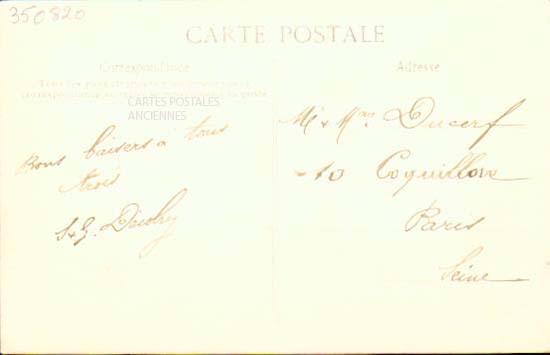 350820
CARTE POSTALE
Correspondance
Adresse
CARTES POSTALES
ANCIENNES
Bons baisers à tous
trois
Mr & Mme Ducerf
10 Coquillère
Paris
Seine